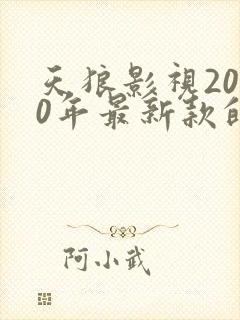 天狼影視20
0年最新款的
阿小武